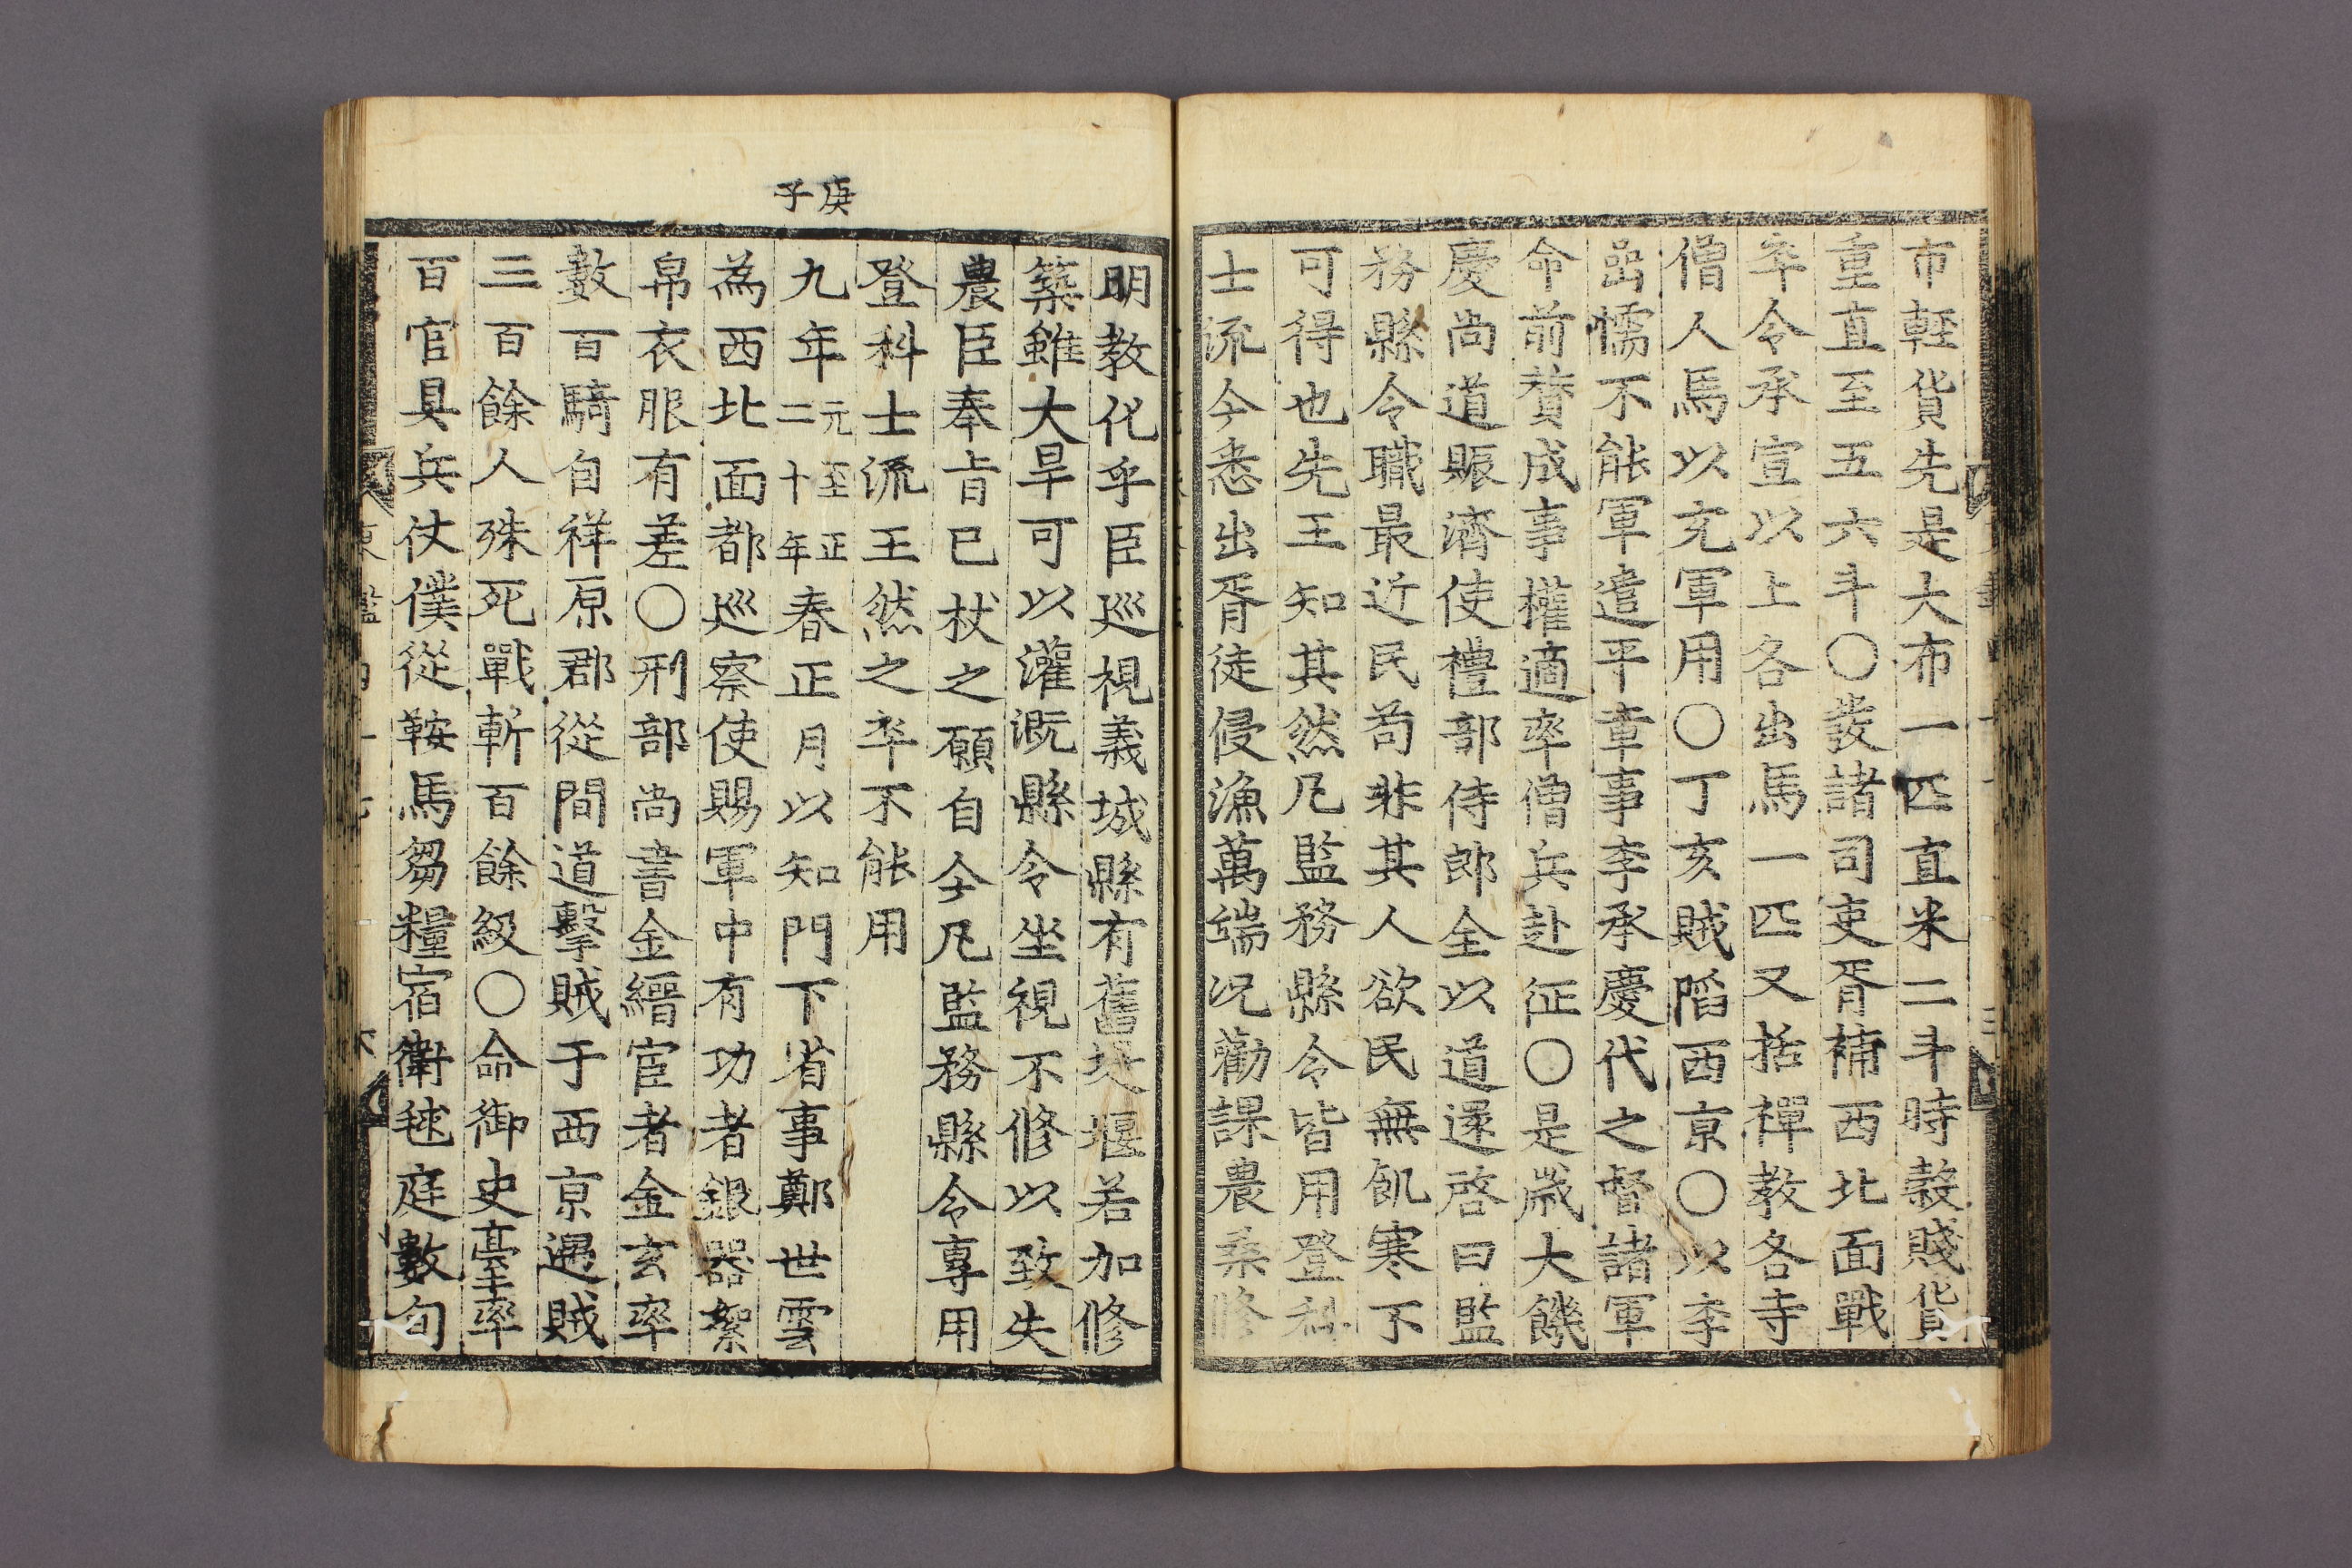 市輕貨先是大布一匹直米二斗時穀賤貨
重直至五六斗〇發諸司吏胥補西北面戰
卒令承宣以上各出馬一匹又括禪教各寺
僧人馬以充軍用〇丁亥賊陷西京〇以李
嵒懦不能軍遣平章事李承慶代之督諸軍
命前贊成事權適率僧兵赴征〇是歲大饑
慶尙道賑濟使禮部侍郎全以道還啓曰監
務縣令職最近民苟非其人欲民無飢寒不
可得也先王知其然凡監務縣令皆用登科
士流今悉出胥徒侵漁萬端况勸課農桑修
明教化乎臣巡視義城縣有舊堤堰若加修
築雖大旱可以灌漑縣令坐視不修以致失
農臣奉旨已杖之願自今凡監務縣令專用
登科士流王然之卒不能用
庚子
九年元至正二十年春正月以知門下省事鄭世雲
爲西北面都巡察使賜軍中有功者銀器絮
帛衣服有差〇刑部尙書金縉宦者金玄率
數百騎自祥原郡從間道擊賊于西京遇賊
三百餘人殊死戰斬百餘級〇命御史臺率
百官具兵仗僕從鞍馬芻糧宿衛毬庭數旬